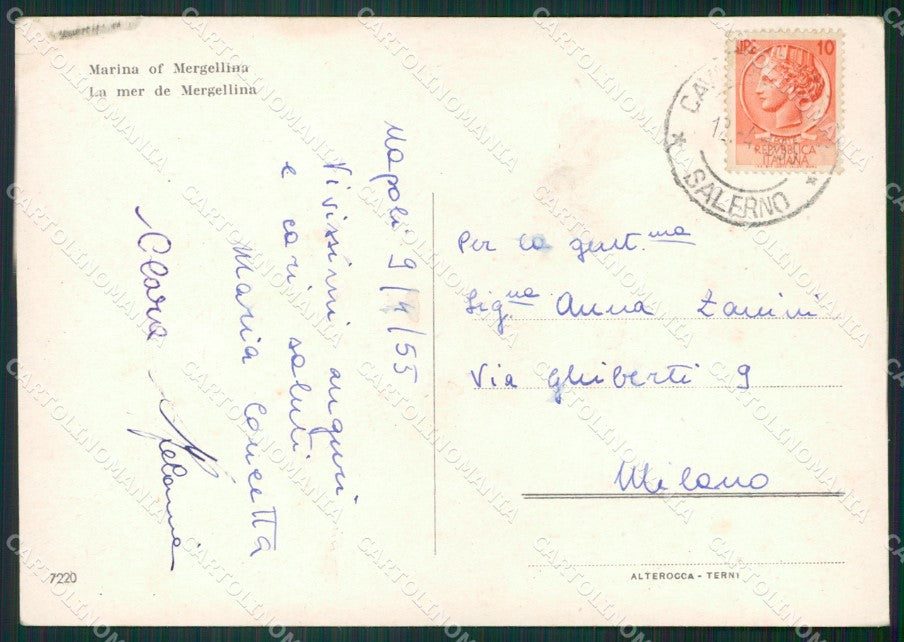 Marina of Mergellina
La mer de Mergellina
Napoli 9/4/55
Vivissimi auguri
e cari saluti.
Maria Concetta
Clara
Melania
10
REPUBBLICA
ITALIANA
SALERNO
Per la gent.ma
Sig.na Anna Zanini
Via Ghiberti 9
Milano
7220
ALTEROCCA - TERNI
CARTOLINOMANIA